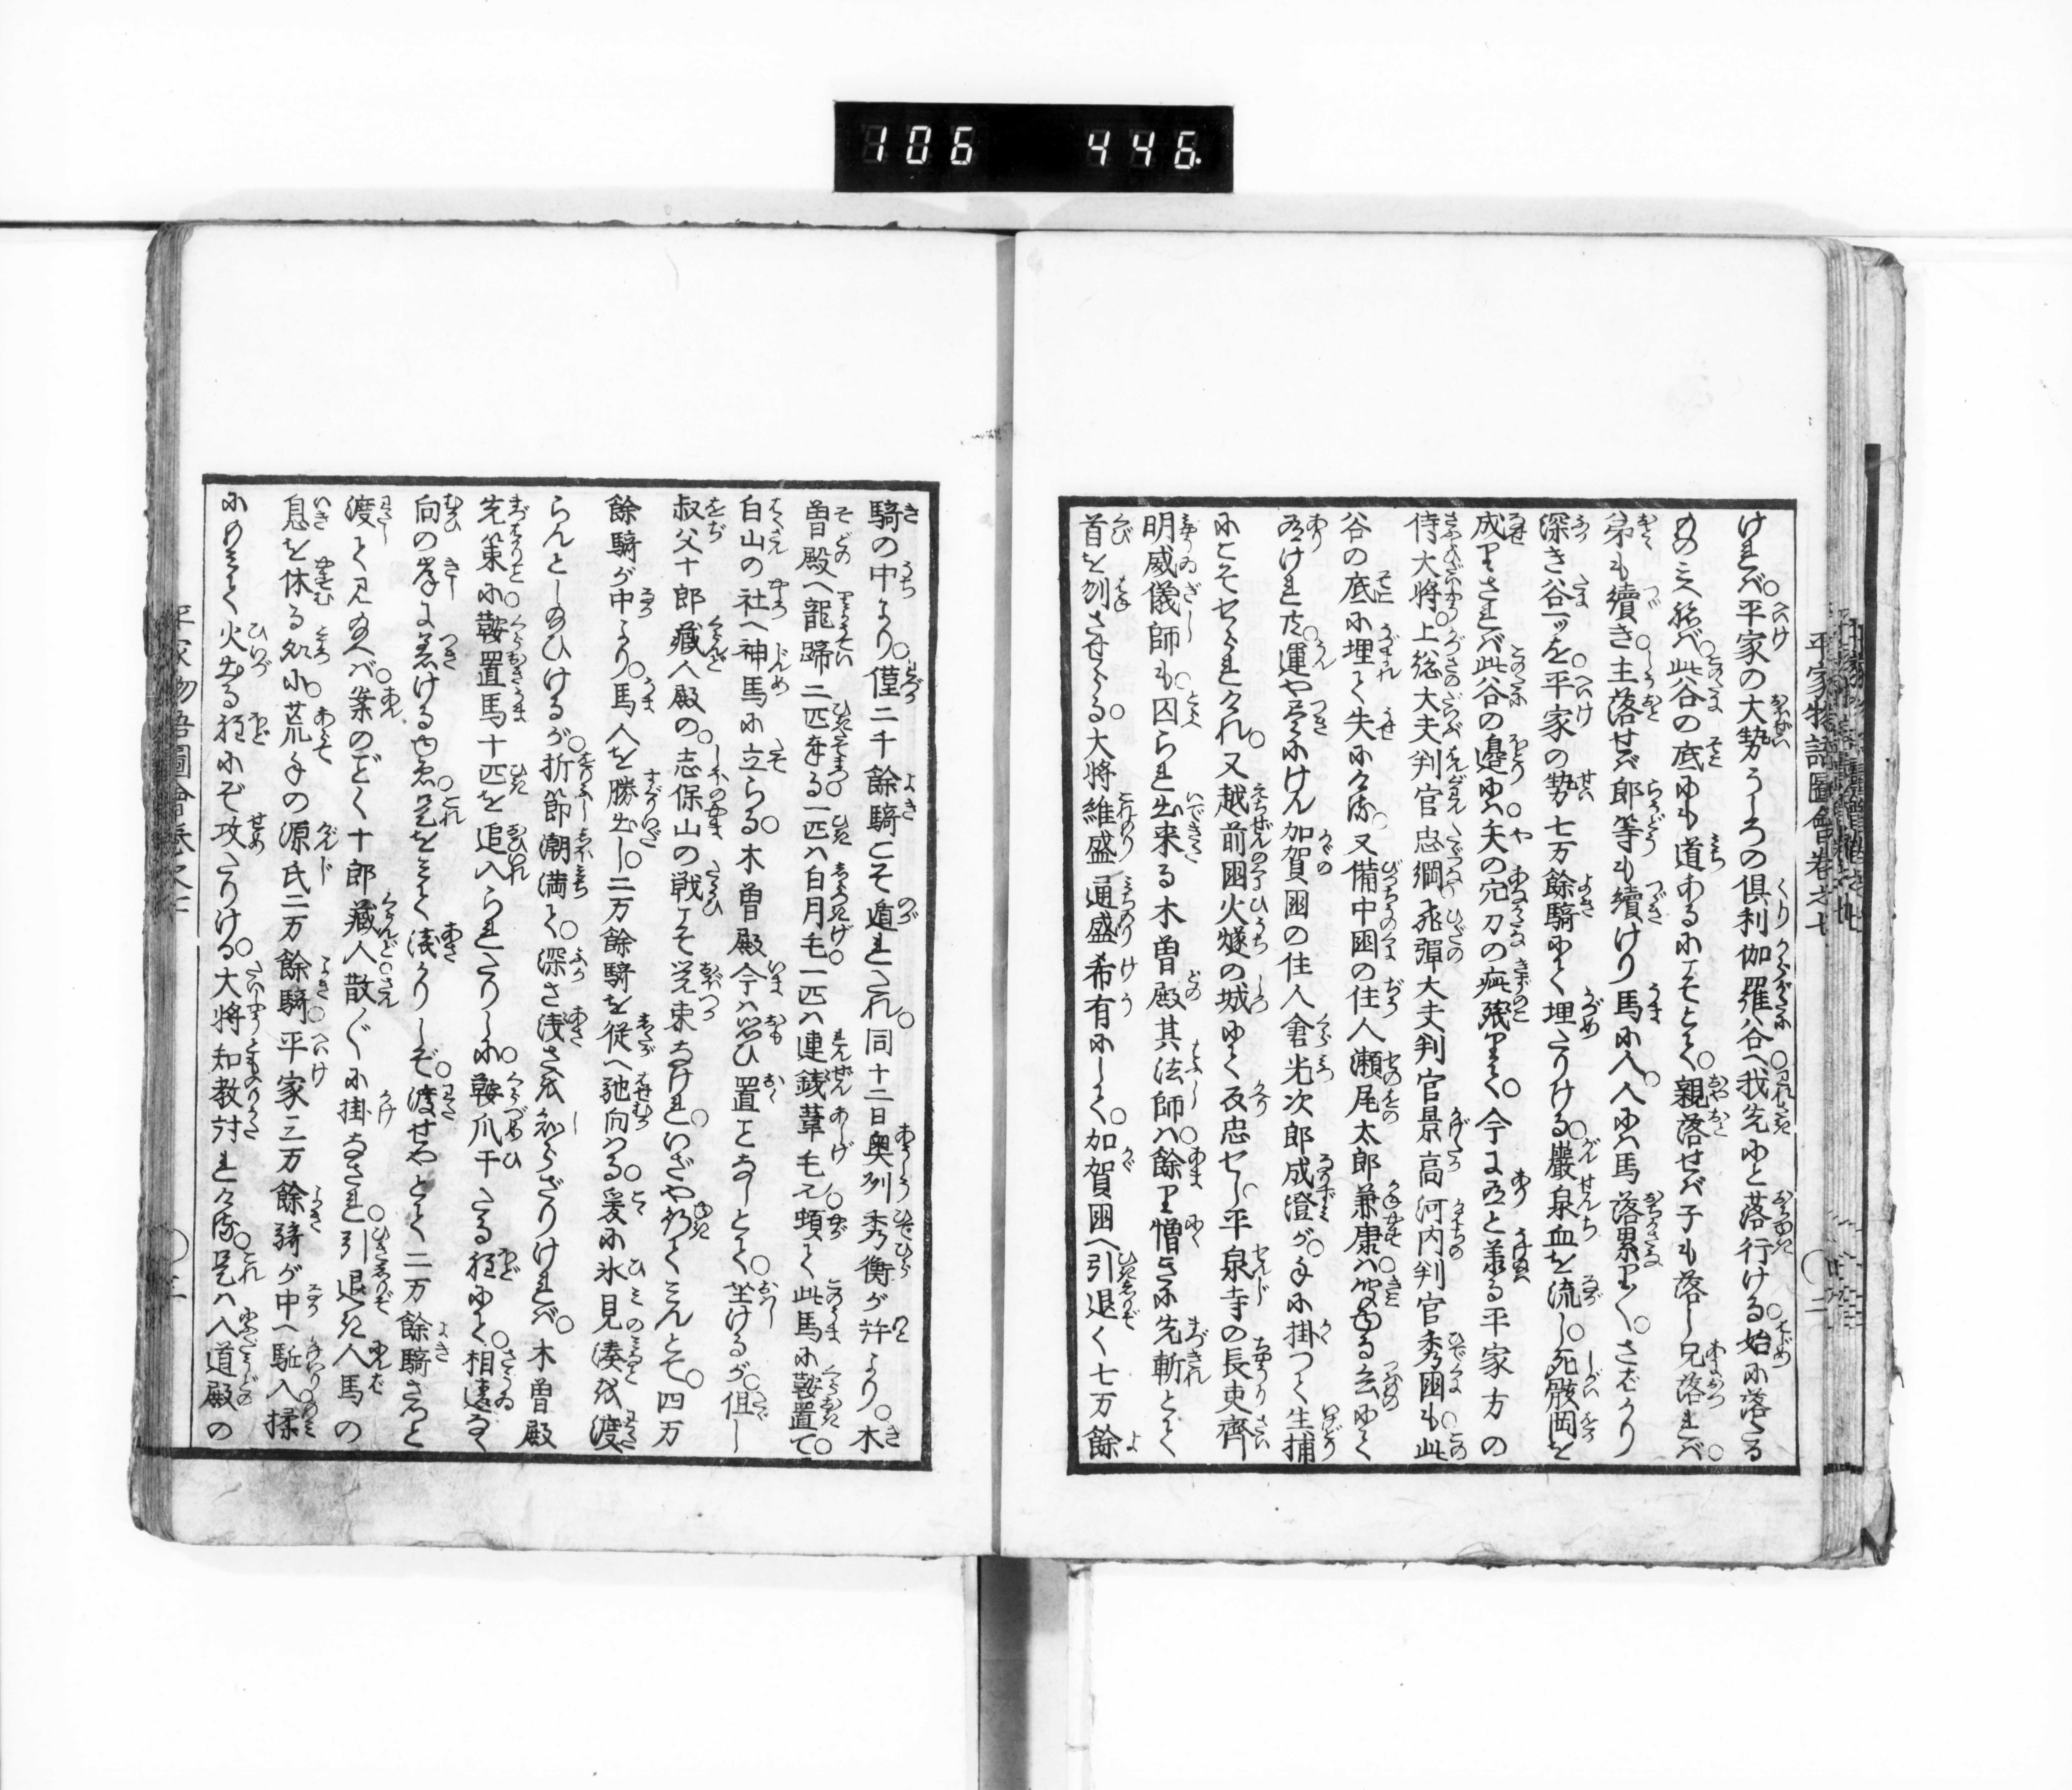 106 446.
平家物語圖會卷之七
けれバ。平家の大勢うしろの倶利伽羅谷へ。我先にと落行ける。始に落たる
ものミえねバ。此谷の底にも道あるにこそとて。親落せバ子も落し兄落れバ。
弟も續き。主落せバ郎等も續けり馬にハ人。人にハ馬落累りて。さばかり
深き谷一ツを。平家の勢七万餘騎にて埋たりける。巖泉血を流し。死骸岡を
成せりされバ此谷の邊にハ。矢の穴刀の疵残りて。今に有と承る平家方の
侍大将。上総大夫判官忠綱飛彈大夫判官景高河内判官秀国も。此
谷の底に埋て失にけり。又備中国の住人瀬尾太郎兼康ハ。聞ゆる兵にて
有けれ共。運や尽にけん加賀国の住人倉光次郎成澄が。手に掛つて生捕
にこそせられけれ。又越前国火燧の城にて反忠せし。平泉寺の長吏齊
明威儀師も。囚られ出来る木曽殿其法師ハ。餘り憎きに先斬とて
首を刎させらる。大将維盛通盛希有にして。加賀国へ引退く七万餘
二
騎の中より。僅二千餘騎こそ遁れたれ。同十二日奥刕秀衡が許より。木
曽殿へ龍蹄二匹奉る。一匹ハ白月毛。一匹ハ連銭葦毛也。頓て此馬に鞍置て。
白山の社へ神馬に立らる。木曽殿今ハ思ひ置ことなしとて。坐けるが。但し
叔父十郎藏人殿の。志保山の戦こそ覚束なけれ。いざや行てミんとて。四万
餘騎が中より。馬人を勝出し。二万餘騎を従へ馳向はる。爰に氷見湊を渡
らんとしのひけるが。折節潮満て。深さ浅さを知らざりけれバ。木曽殿
先策に。鞍置馬十匹を追入られたりしに。鞍爪干たる程にて。相違なく
向の岸に着ける由ゑ。是をミて淺かりしぞ。渡せやとて二万餘騎さつと
渡て見給へバ。案のごとく十郎藏人散々に掛なされ。引退き人馬の
息を休る処に。荒手の源氏二万餘騎。平家三万餘騎が中へ駈入。揉
にもミて火出る程にぞ攻たりける。大将知教討れけり。是ハ入道殿の
平家物語圖會卷之七
三